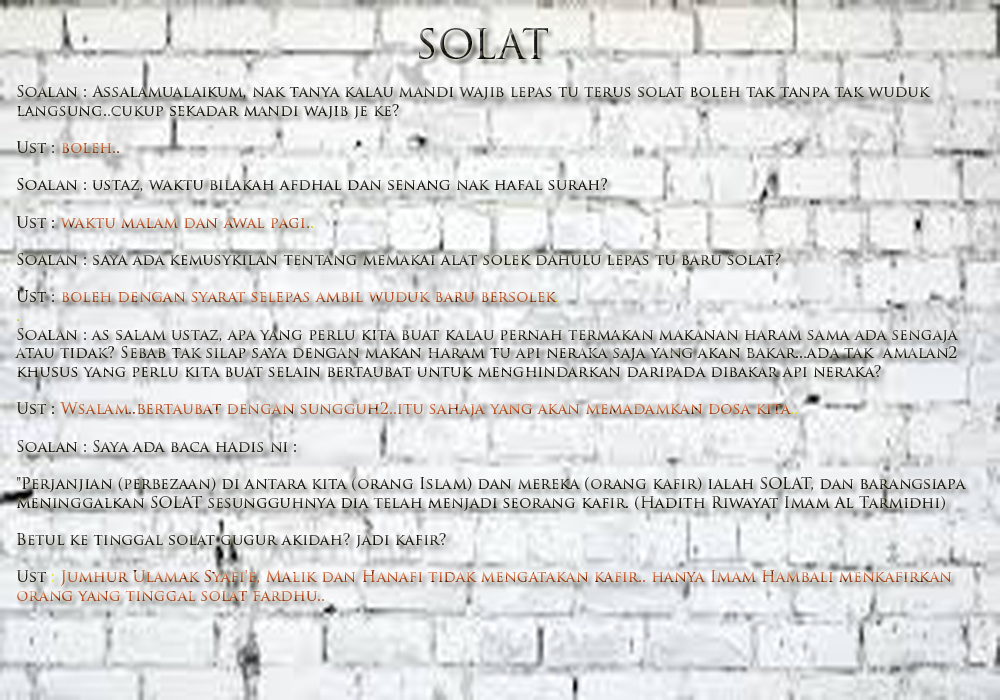 SOLAT
SOALAN : ASSALAMUALAIKUM, NAK TANYA KALAU MANDI WAJIB LEPAS TU TERUS SOLAT BOLEH TAK TANPA TAK WUDUK
LANGSUNG..CUKUP SEKADAR MANDI WAJIB JE KE?
UST : BOLEH..
SOALAN : USTAZ, WAKTU BILAKAH AFDHAL DAN SENANG NAK HAFAL SURAH?
UST : WAKTU MALAM DAN AWAL PAGI..
SOALAN : SAYA ADA KEMUSYKILAN TENTANG MEMAKAI ALAT SOLEK DAHULU LEPAS TU BARU SOLAT?
UST : BOLEH DENGAN SYARAT SELEPAS AMBIL WUDUK BARU BERSOLEK
SOALAN : AS SALAM USTAZ, APA YANG PERLU KITA BUAT KALAU PERNAH TERMAKAN MAKANAN HARAM SAMA ADA SENGAJA
ATAU TIDAK? SEBAB TAK SILAP SAYA DENGAN MAKAN HARAM TU API NERAKA SAJA YANG AKAN BAKAR...ADA TAK AMALAN2
KHUSUS YANG PERLU KITA BUAT SELAIN BERTAUBAT UNTUK MENGHINDARKAN DARIPADA DIBAKAR API NERAKA?
UST : WSALAM..BERTAUBAT DENGAN SUNGGUH2..ITU SAHAJA YANG AKAN MEMADAMKAN DOSA KITA..
SOALAN : SAYA ADA BACA HADIS NI :
"PERJANJIAN (PERBEZAAN) DI ANTARA KITA (ORANG ISLAM) DAN MEREKA (ORANG KAFIR) IALAH SOLAT, DAN BARANGSIAPA
MENINGGALKAN SOLAT SESUNGGUHNYA DIA TELAH MENJADI SEORANG KAFIR. (HADITH RIWAYAT IMAM AL TARMIDHI)
BETUL KE TINGGAL SOLAT GUGUR AKIDAH? JADI KAFIR?
UST : JUMHUR ULAMAK SYAFI'E, MALIK DAN HANAFI TIDAK MENGATAKAN KAFIR.. HANYA IMAM HAMBALI MENKAFIRKAN
ORANG YANG TINGGAL SOLAT FARDHU..